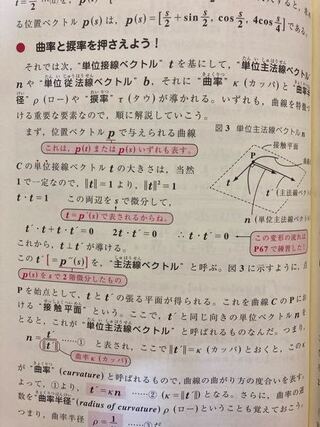 る位置ベクトル p(s) は, p(s)=[s/2+sin s/2, cos s/2, 4cos s/4]
● 曲率と捩率を押さえよう!
それでは次, “単位接線ベクトル” t を基にして, “単位主法線ベクトル”
n や “単位従法線ベクトル” b, それに “曲率” κ (カッパ) と “曲率半
径” ρ (ロー) や “捩率” τ (タウ) が導かれる。いずれも, 曲線を特徴づ
ける重要な要素なので, 順に解説していこう。
まず, 位置ベクトル p で与えられる曲線
これは, p(t) または p(s) いずれも表す。
図3 単位主法線ベクトル n
接触平面
P
t
t′ (主法線ベクトル)
n (単位主法線ベクトル)
C の単位接線ベクトル t の大きさは, 当然
1 で一定なので, ||t||=1 より, ||t||²=1
t・t=1 この両辺を s で微分して,
t=p′(s) で表されるからね。
t′・t+t・t′=0 2t・t′=0 ∴ t・t′=0
この変形の流れは
P67 で練習した!
これから, t⊥t′ が導ける。
この t′[=p″(s)] を “主法線ベクトル” と呼ぶ。図3に示すように, 点
p(s) を s で 2 階微分したもの
P を始点として, t と t′ の張る平面が得られる。これを曲線 C の P にお
ける “接触平面” という。ここで, t′ と同じ向きの単位ベクトル n を
とると, これが “単位主法線ベクトル” と呼ばれるものなんだ。つまり,
n=t′/||t′|| ……① と表され, ここで ||t′||=κ (カッパ) とおくと, この κ
曲率 κ (カッパ)
が “曲率” (curvature) と呼ばれるもので, 曲線の曲がり方の度合いを表す。
よって, ①より, t′=κn ……② (κ=||t′||) となる。さらに, 曲率の逆
数を “曲率半径” (radius of curvature) ρ (ロー) ということも覚えておこう。
つまり, 曲率半径 ρ=1